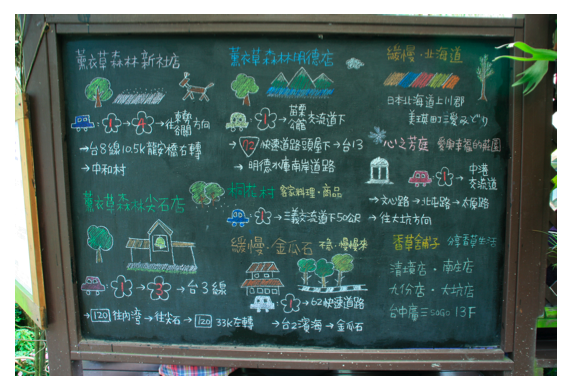 薰衣草森林新社店
1 → 4 → 往東勢谷關方向
→台8線10.5K龍安橋右轉
→中和村
薰衣草森林尖石店
1 → 3 → 台3線
→120往內灣→往尖石→120 33K左轉
薰衣草森林明德店
1 苗栗公館交流道下
→72快速道路頭屋下→台13
→明德水庫南岸道路
桐花村 客家料理·商品
1 →三義交流道下50公尺
緩慢·金瓜石 不急·慢慢來
1 →62快速道路
→台2濱海→金瓜石
緩慢·北海道
日本北海道上川郡
美瑛町三愛みどり
心之芳庭 愛與幸福的莊園
1 →中港交流道
→文心路→北屯路→太原路
→往大坑方向
香草舖子 分享香草生活
清境店·南庄店
九份店·大坑店
台中廣三SOGO 13F